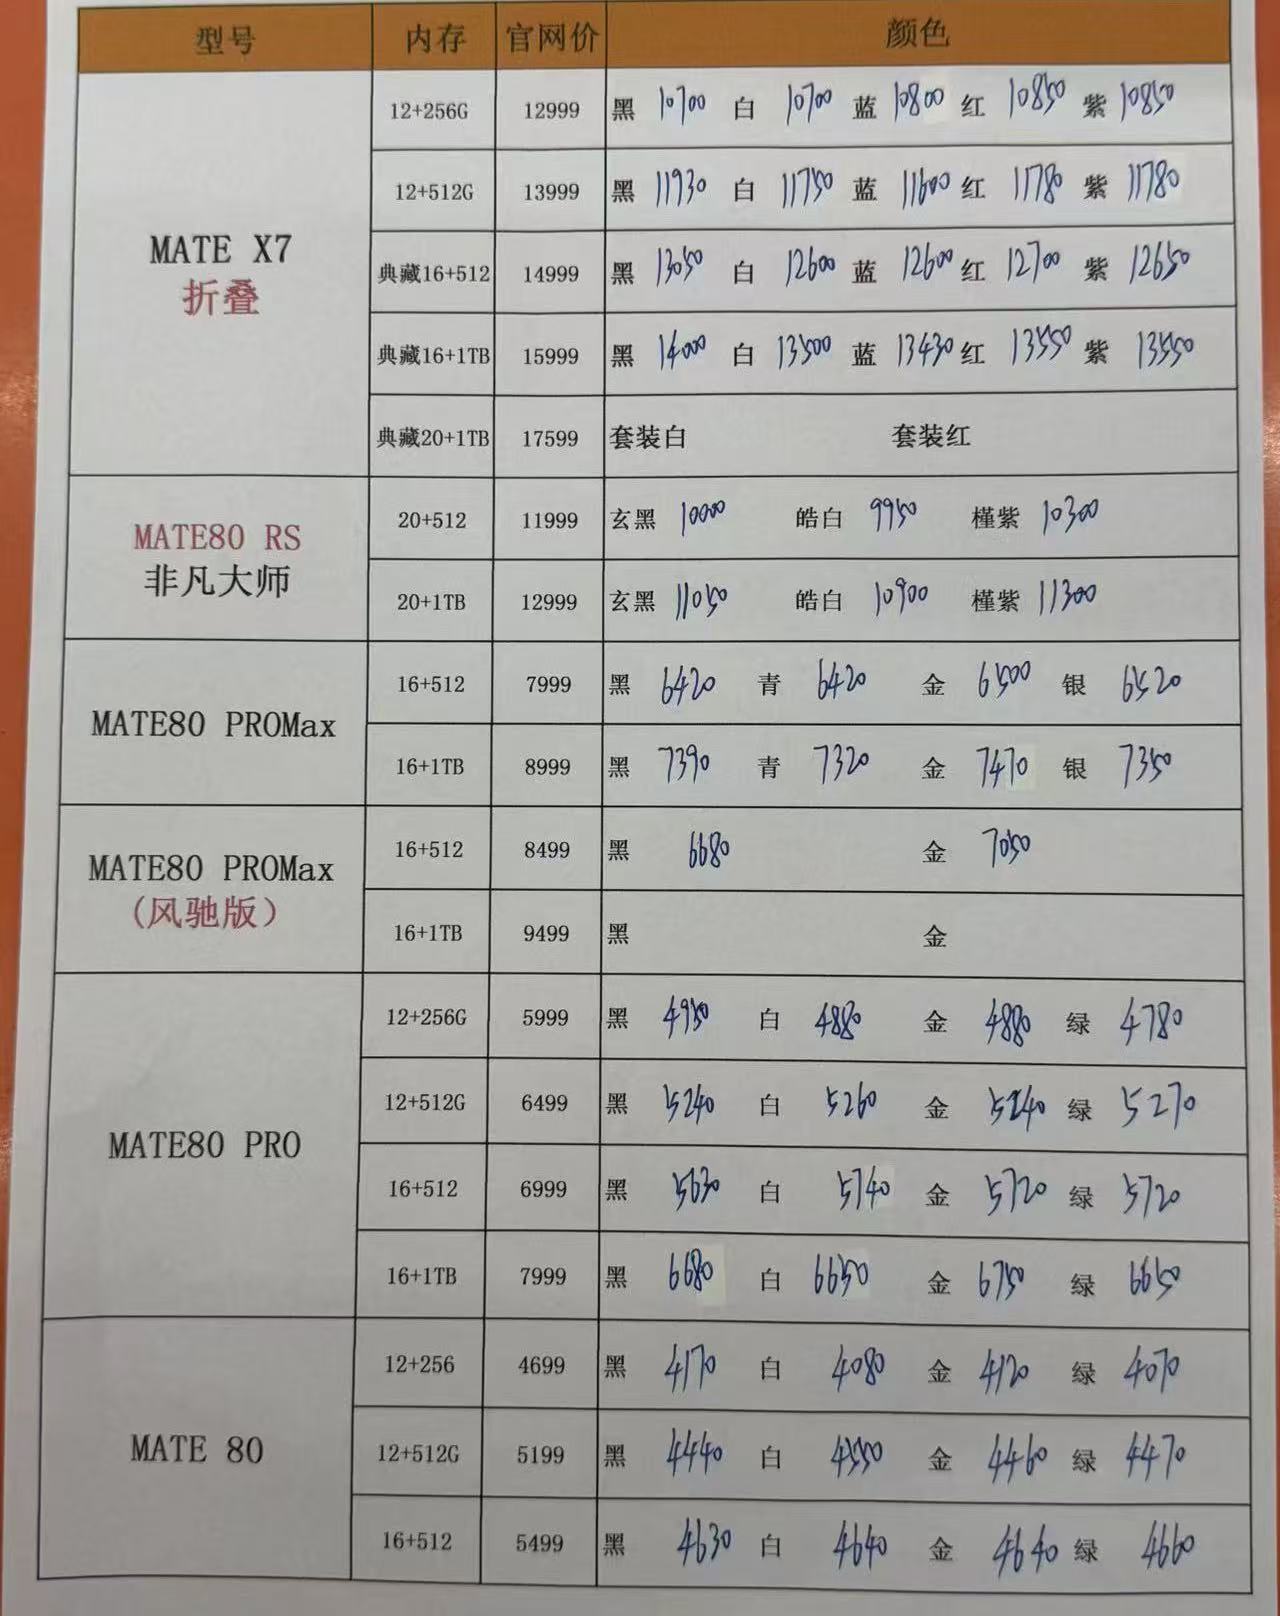 型号 内存 官网价 颜色
MATE X7
折叠
12+256G 12999 黑 10700 白 10700 蓝 10800 红 10850 紫 10850
12+512G 13999 黑 11930 白 11750 蓝 11600 红 11780 紫 11780
典藏16+512 14999 黑 13050 白 12600 蓝 12600 红 12700 紫 12650
典藏16+1TB 15999 黑 14000 白 13500 蓝 13430 红 13550 紫 13550
典藏20+1TB 17599 套装白 套装红
MATE80 RS
非凡大师
20+512 11999 玄黑 10000 皓白 9950 槿紫 10300
20+1TB 12999 玄黑 11050 皓白 10900 槿紫 11300
MATE80 PROMax
16+512 7999 黑 6420 青 6420 金 6500 银 6520
16+1TB 8999 黑 7390 青 7320 金 7470 银 7350
MATE80 PROMax
(风驰版)
16+512 8499 黑 6680 金 7050
16+1TB 9499 黑 金
MATE80 PRO
12+256G 5999 黑 4950 白 4880 金 4880 绿 4780
12+512G 6499 黑 5240 白 5260 金 5240 绿 5270
16+512 6999 黑 5630 白 5740 金 5720 绿 5720
16+1TB 7999 黑 6680 白 6650 金 6750 绿 6650
MATE 80
12+256 4699 黑 4170 白 4080 金 4120 绿 4070
12+512G 5199 黑 4440 白 4550 金 4460 绿 4470
16+512 5499 黑 4630 白 4640 金 4640 绿 4660